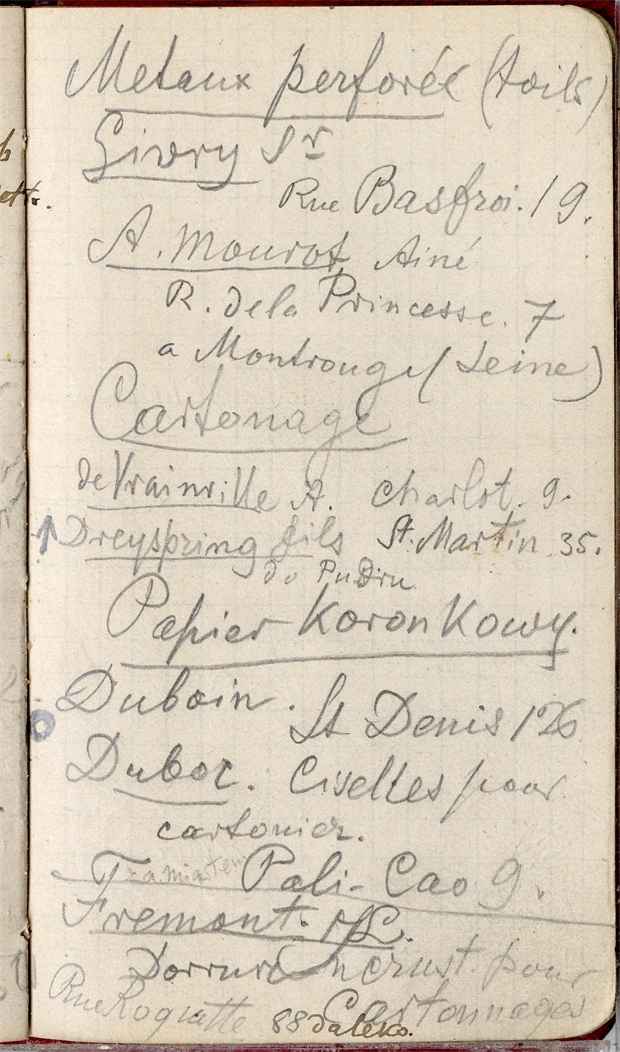 Metaux perforée (toils)
Givry Sr
Rue Basfroi. 19.
A. Mourot Ainé
R. de la Princesse. 7
a Montrouge (Seine)
Cartonage
de Vrainville A. Charlot. 9.
Dreyspring fils St. Martin 35.
do Pudru
Papier Koronkowy.
Duboin. St Denis 126
Duboc. Ciselles pour
cartonier.
Tzamiasten Pali-Cao 9.
Fremont.
Dorrure incrust. pour
Cartonnages
Rue Roquette 88 daleko.